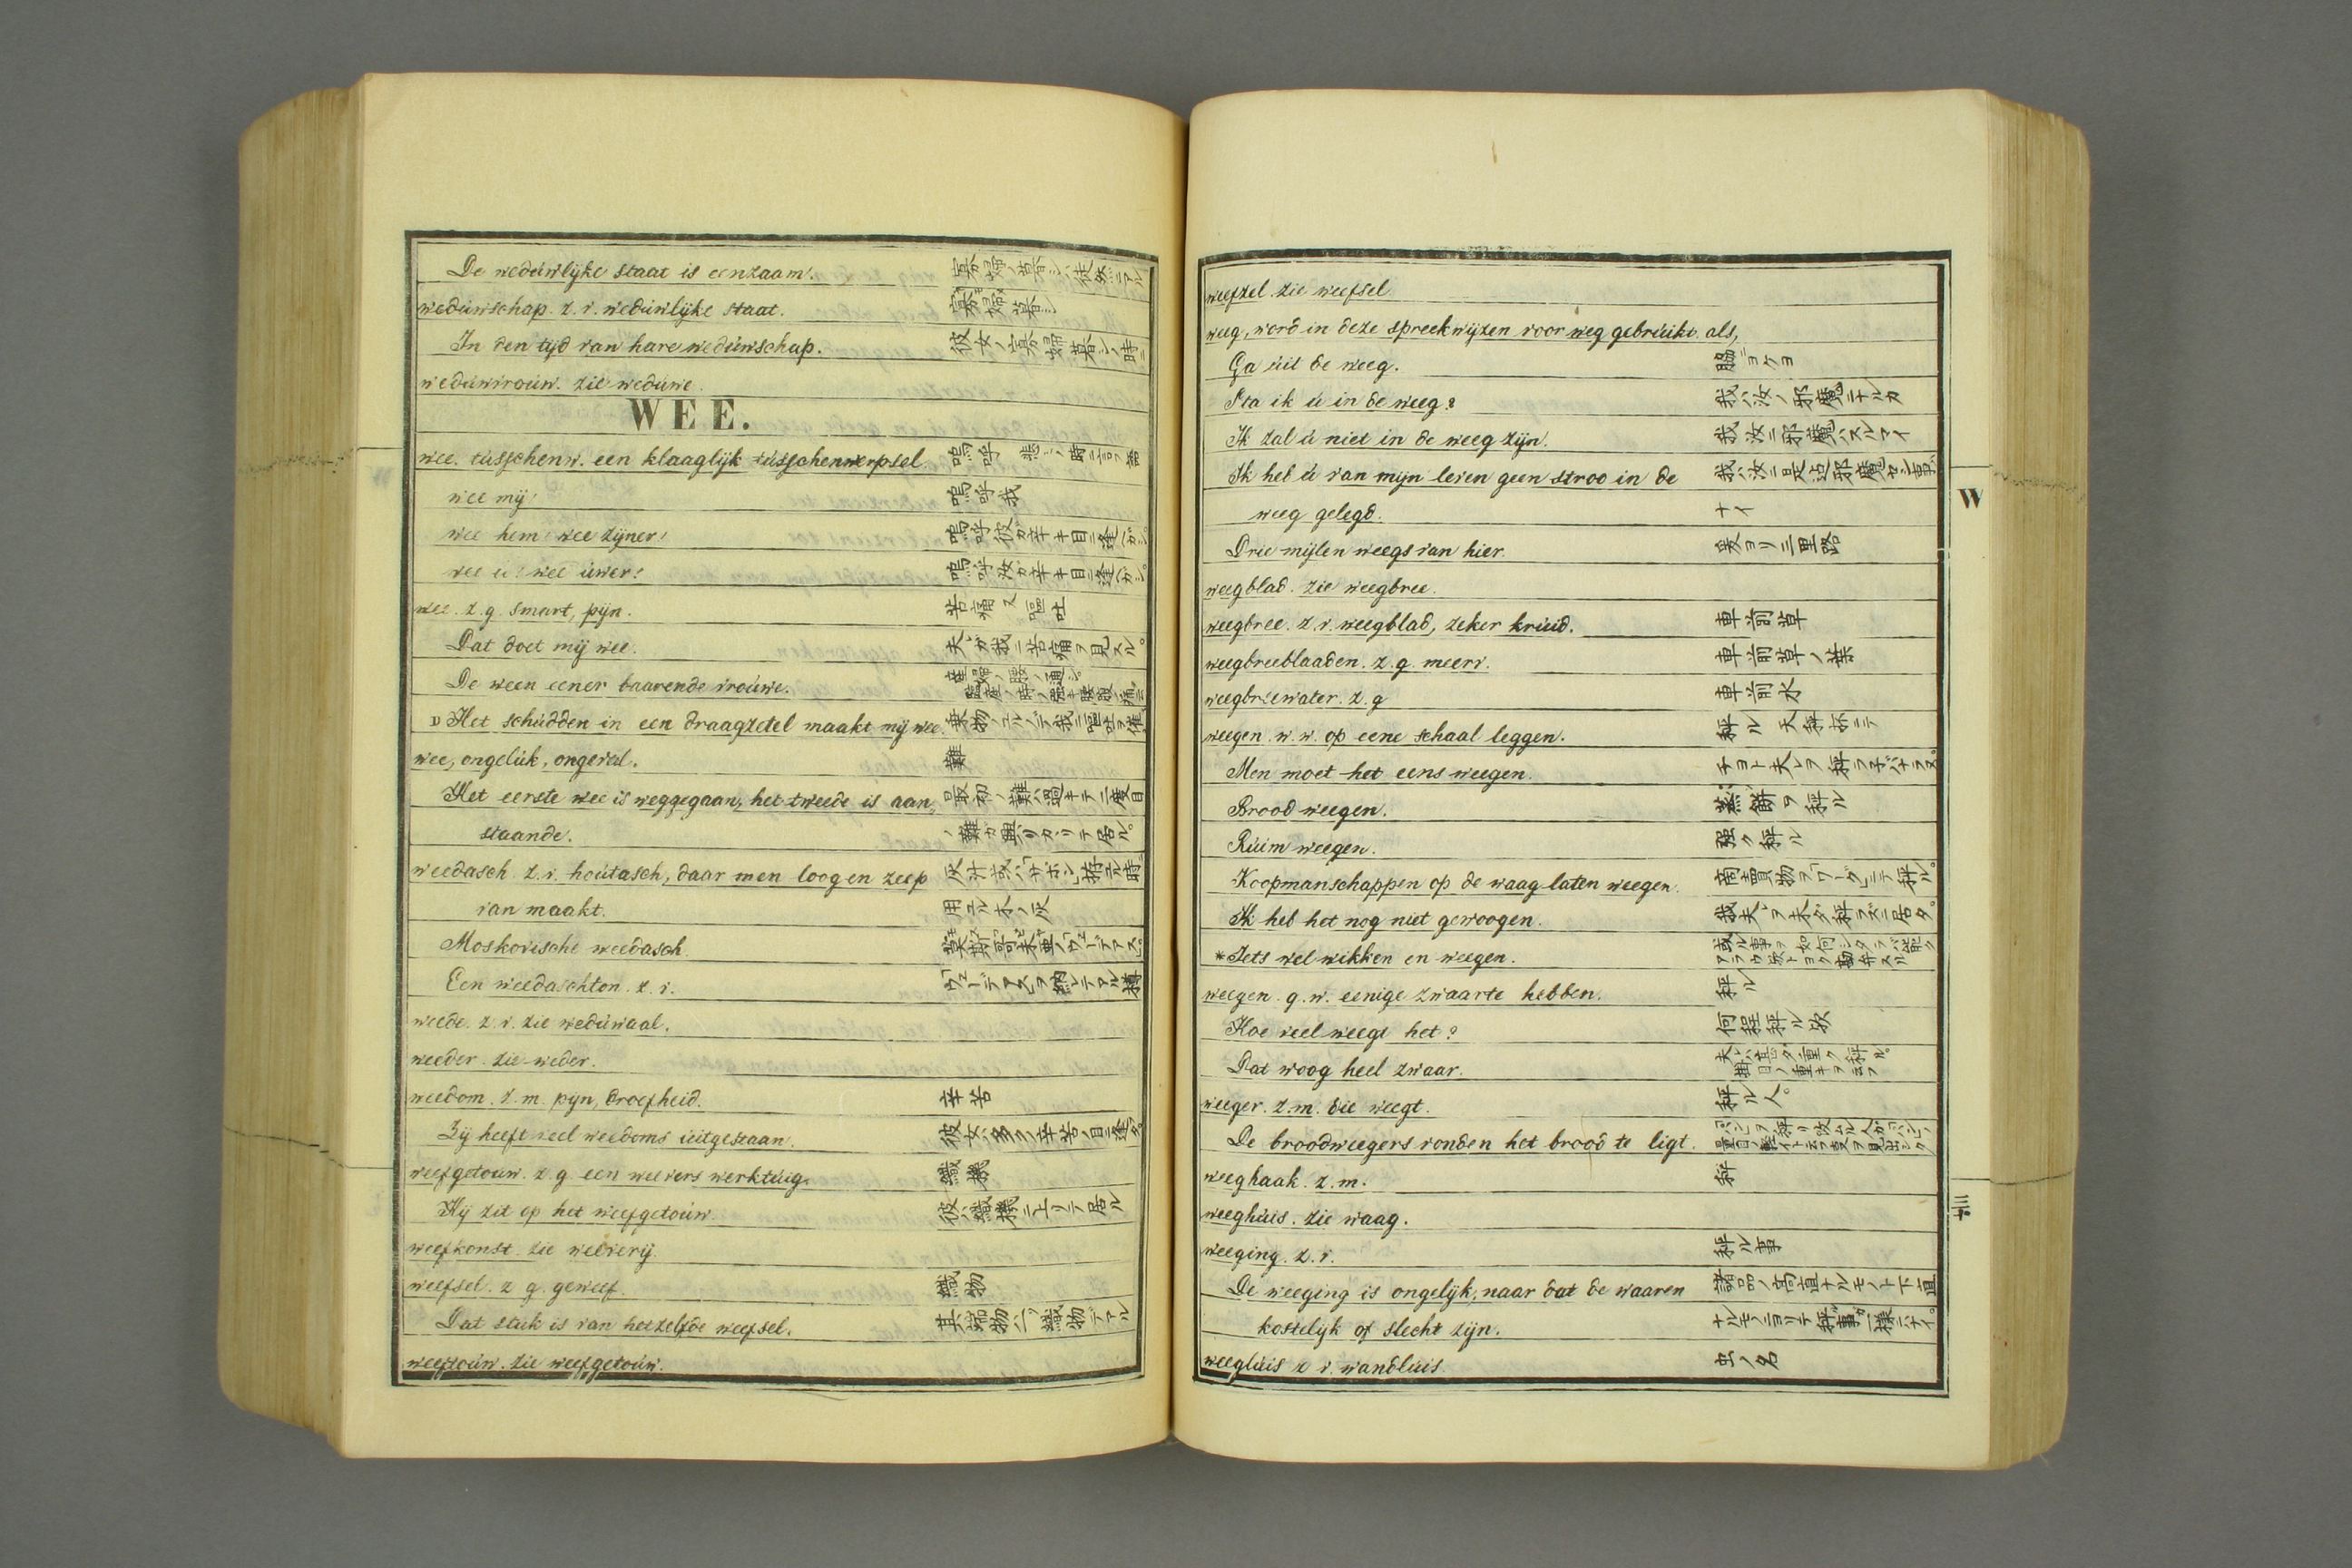 De wedúwlijke staat is eenzaam. 寡婦ノ暮シハ徒然デアル
wedúwschap. z. v. wedúwlijke staat. 寡婦暮シ
In den tijd van hare wedúwschap. 彼女ノ寡婦暮シノ時ニ
wedúwvroúw. zie wedúwe.
WEE.
wee. tússchenw. een klaaglijk tússchenwerpsel. 嗚呼 悲シノ時ニ言フ語
wee mij! 嗚呼我
wee hem! wee zijner! 嗚呼彼ガ辛キ目ニ逢ヘガシ。
wee ú! wee úwer! 嗚呼汝ガ辛キ目ニ逢ヘガシ。
wee. z. g. smart, pijn. 苦痛 又 嘔吐
Dat doet mij wee. 夫レガ我ニ苦痛ヲ見スル。
De ween eener baarende vroúwe.
Het schúdden in een draagzetel maakt mij wee. 乗物ノユルノデ我ニ嘔吐ヲ催
wee, ongelúk, ongeval. 難
Het eerste wee is weggegaan, het tweede is aan, 最初ノ難ハ過キテ二度目
staande. ノ難ガ興リカヽリテ居ル。
weedasch z. v. hoútasch, daar men loog en zeep 灰汁或ハサボンヲ拵ユル時ニ
van maakt. 用ユル木ノ灰
Moskovische weedasch. 莫斯哥未亜ノウェーデアス。
Een weedaschton. z. v. ウェーデアスヲ納レテアル樽
weede. z. v. zie wedúwaal.
weeder. zie weder.
weedom. z. m. pijn, droefheid. 辛苦
Zij heeft veel weedoms úitgestaan. 彼女ハ多ク辛苦ノ目ニ逢タ
weefgetoúw. z. g. een weevers werktúig. 織機
Hij zit op het weefgetoúw. 彼ハ織機ニ上リテ居ル
weefkonst. zie weeverij.
weefsel. z g. geweef. 織物
Dat stúk is van hetzelfde weefsel. 其端物ハ一ツ織物デアル
weeftoúw. zie weefgetoúw.
weefzel. zie weefsel.
weeg, word in deze spreekwijzen voor weg gebrúikt. als,
Ga úit de weeg. 脇ニヨケヨ
Sta ik ú in de weeg? 我ハ汝ノ邪魔ニナルカ
Ik zal ú niet in de weeg zijn. 我汝ニ邪魔ハスルマイ
Ik heb ú van mijn leven geen stroo in de 我ハ汝ニ是迄邪魔セシ事ハ
weeg gelegd. ナイ
Drie mijlen weegs van hier. 是ヨリ三里路
weegblad. zie weegbree.
weegbree. z. v. weegblad, zeker krúid. 車前草
weegbreeblaaden. z. g. meerv. 車前草ノ葉
weegbreewater. z. g 車前水
weegen. w. w. op eene schaal leggen. 秤ル 天秤杯ニテ
Men moet het eens weegen. チヨト夫レヲ秤ラ子バナラヌ。
Brood weegen. 蒸餅ヲ秤ル
Rúim weegen. 强ク秤ル
Koopmanschappen op de waag laten weegen. 商賣物ヲワーグニテ秤ル。
Ik heb het nog niet gewoogen. 我夫レヲ未ダ秤ラズニ居タ。
*Iets wel wikken en weegen.
weegen. g. w. eenige zwaarte hebben. 秤ル
Hoe veel weegt het? 何程秤ル欤
Dat woog heel zwaar. 夫レハ甚ダ重ク秤ル。掛目ノ重キヲ云フ
weeger. z. m. die weegt. 秤ル人。
De broodweegers vonden het brood te ligt.
weeghaak. z. m. 秤
weeghúis. zie waag.
weeging. z. v. 秤ル事
De weeging is ongelijk, naar dat de waaren 諸品ノ高直ナルモノト下直
kostelijk of slecht zijn. ナルモノニヨリテ秤ル事ガ一様ニナイ。
weeglúis z v. wandlúis. 虫ノ名
W